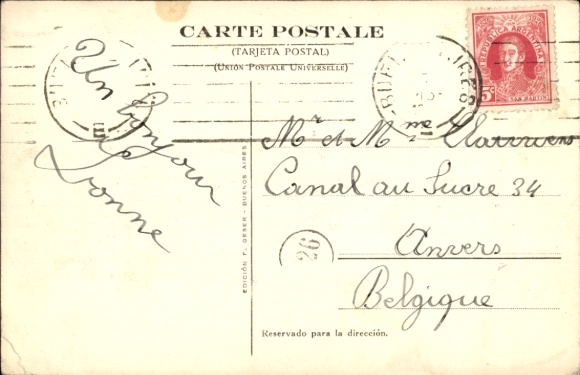 CARTE POSTALE
(TARJETA POSTAL)
(UNIÓN POSTALE UNIVERSELLE)
REPUBLICA ARGENTINA
5c
SAN MARTIN
BUENOS AIRES
Un bonjour
de
Yvonne
Mr et Mme
Canal au Sucre 34
Anvers
Belgique
26
EDICIÓN F. GESER - BUENOS AIRES
Reservado para la dirección.